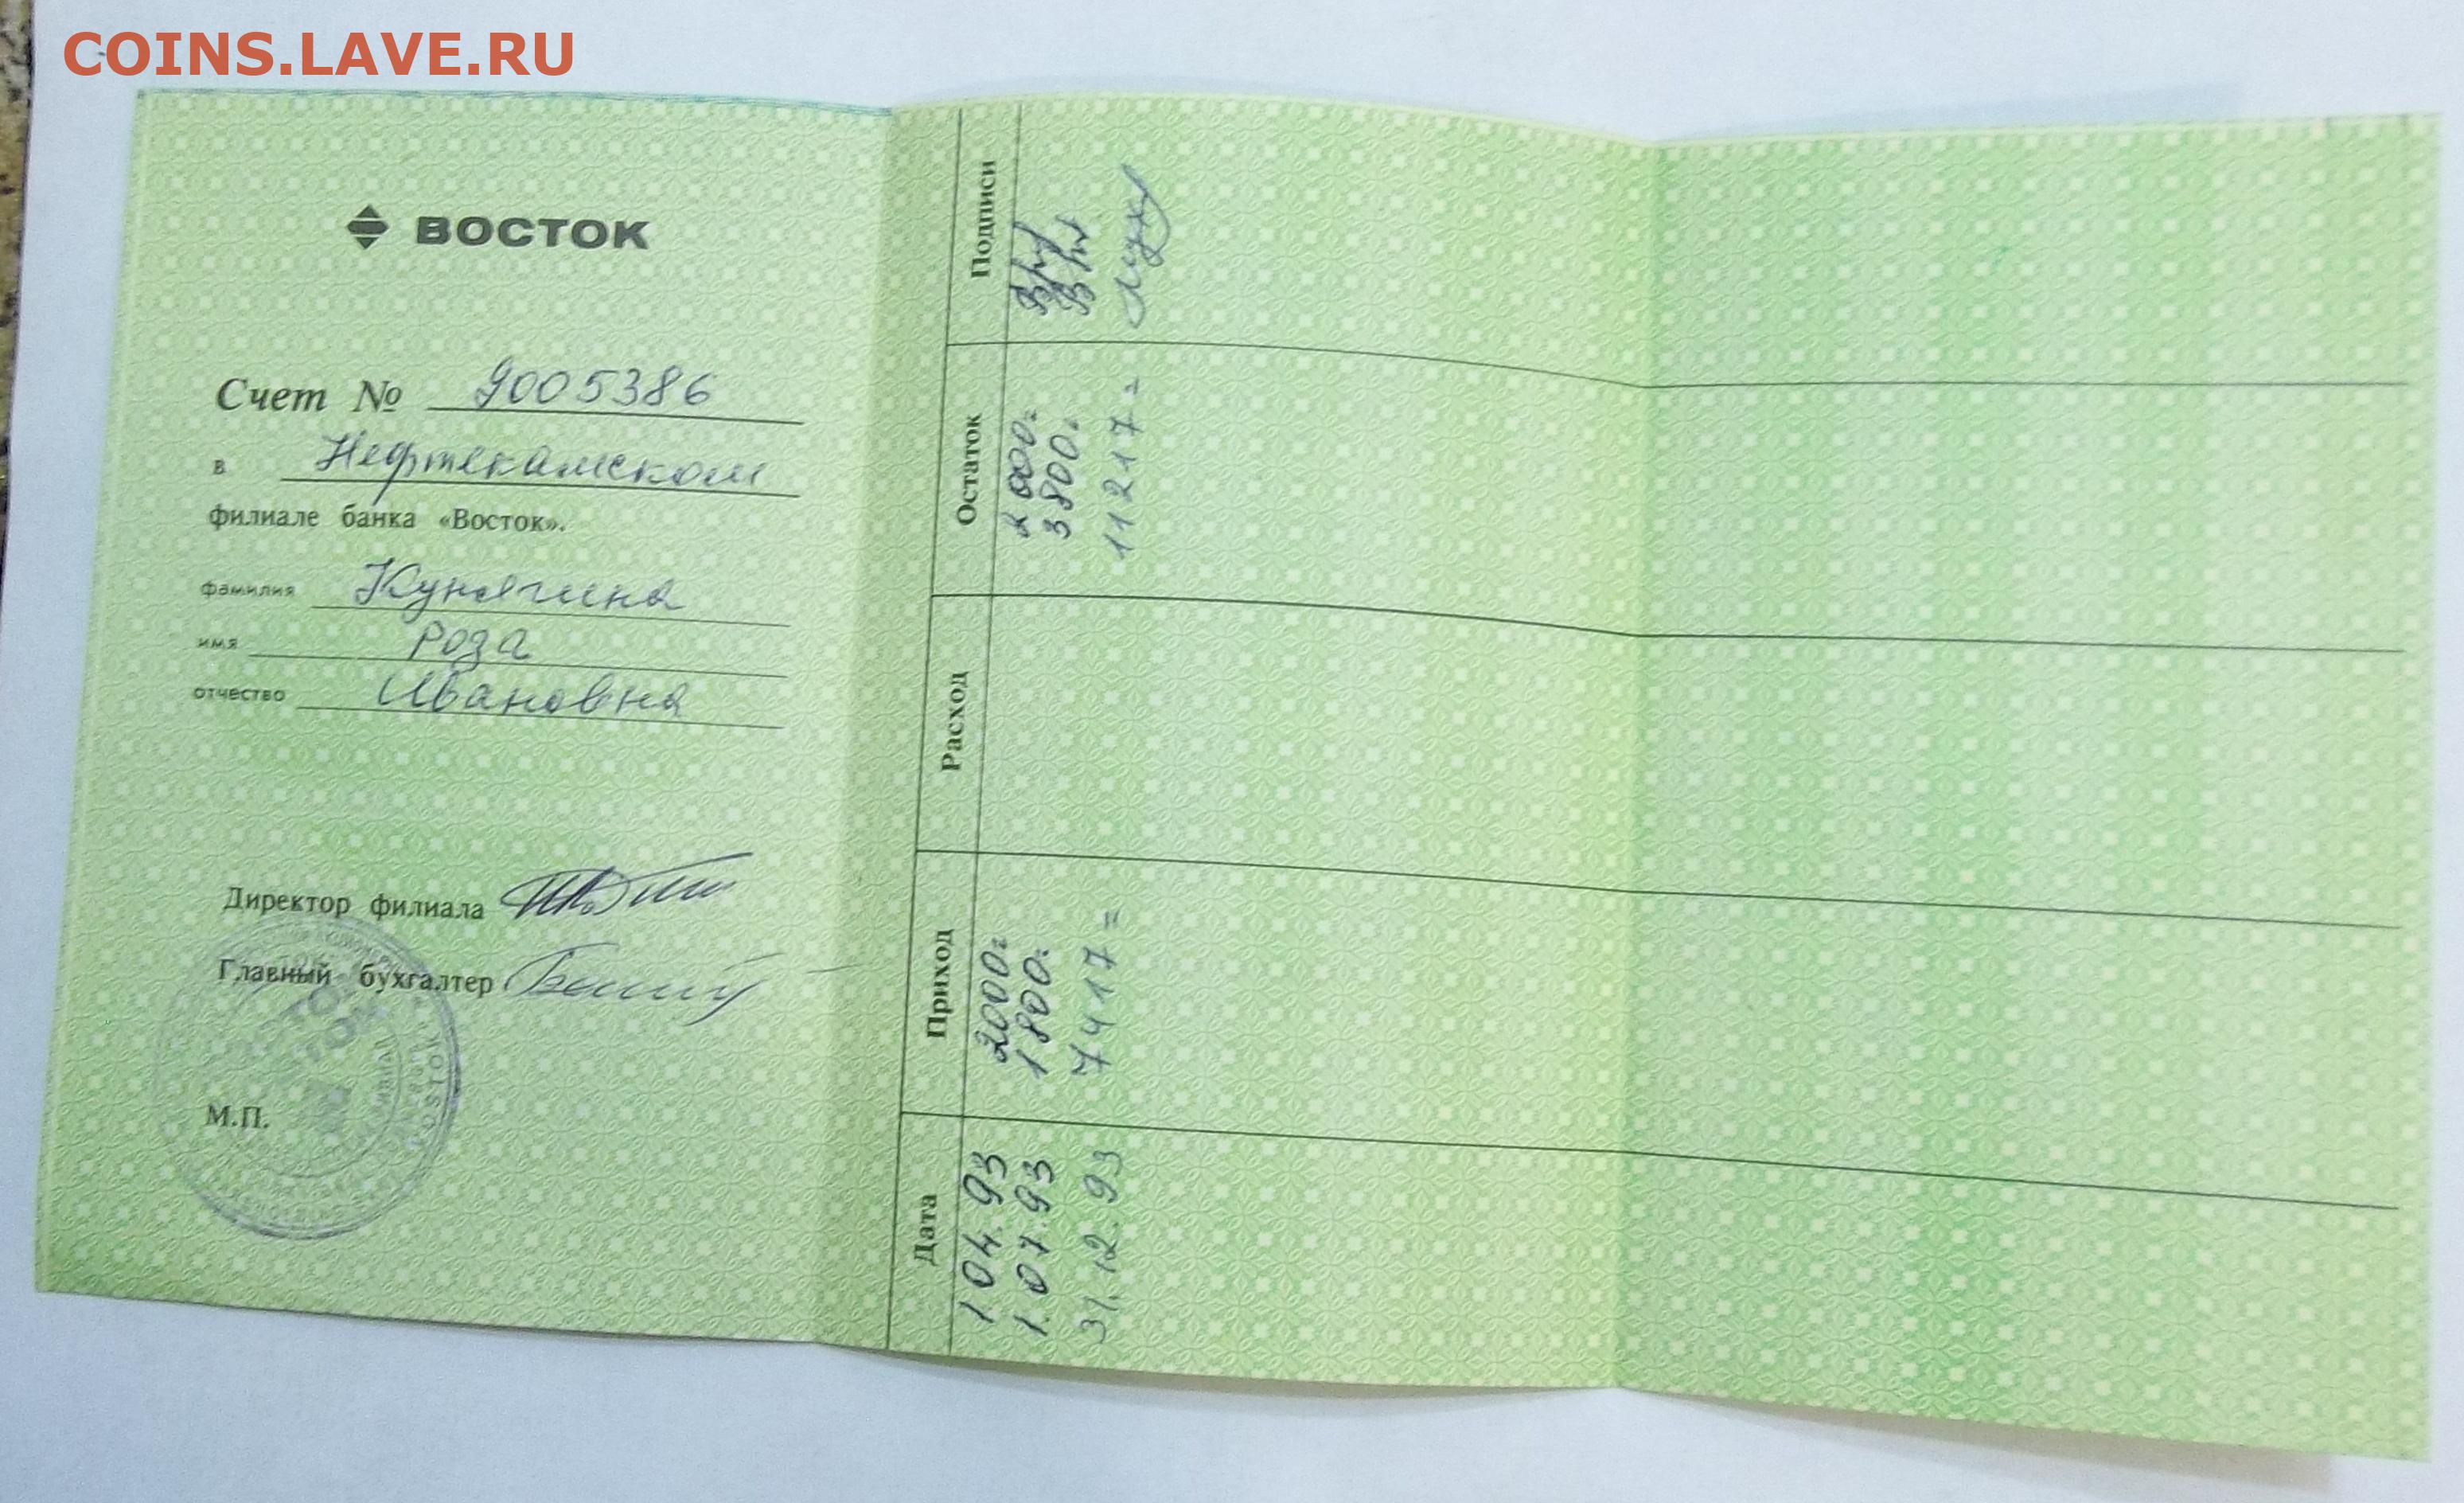 COINS.LAVE.RU
ВОСТОК
Счет № 9005386
в Нефтекамском
филиале банка «Восток».
фамилия Кунягина
имя Роза
отчество Ивановна
Директор филиала
Главный бухгалтер
М.П.
ВОСТОК
VOSTOK
Дата Приход Расход Остаток Подписи
1.04.93 2000= 2000=
1.07.93 1800= 3800=
31.12.93 7417= 11217=